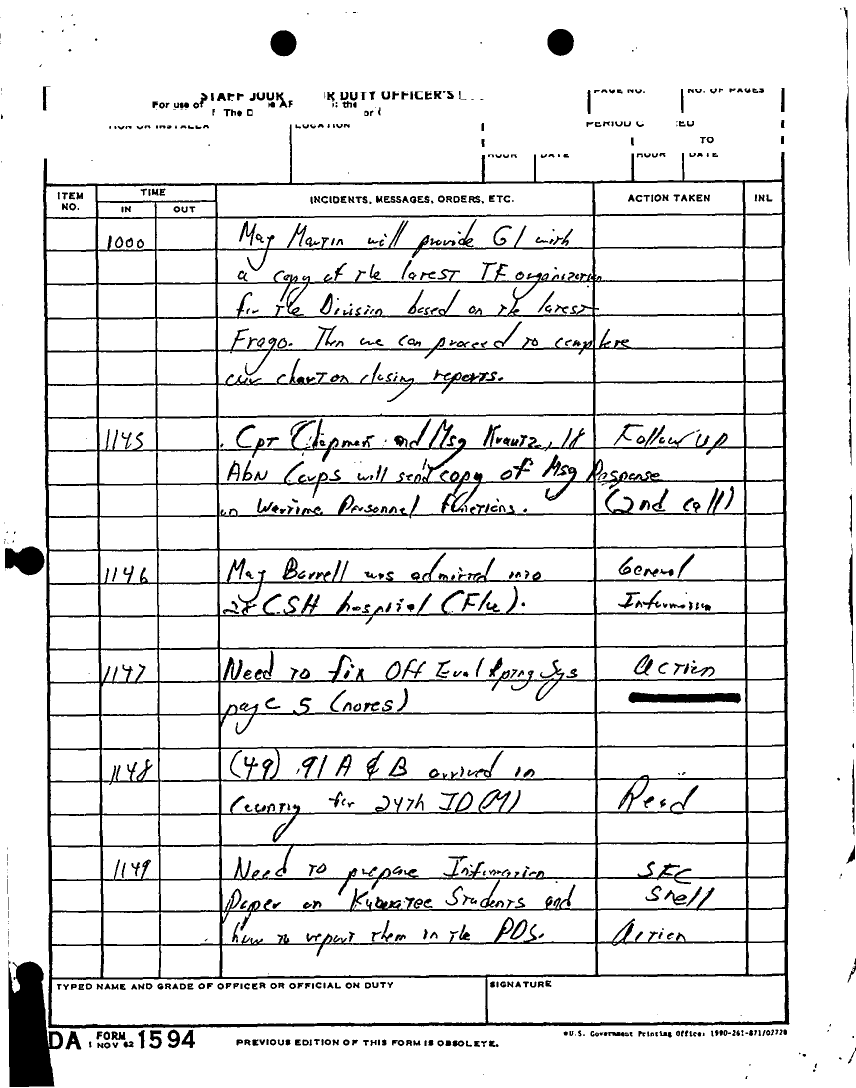 STAFF JOUR R DUTY OFFICER'S
PAGE NO. NO. OF PAGES
For use of the
The D or
LOCATION
PERIOD C ED
TO
HOUR DATE HOUR DATE
ITEM NO. TIME INCIDENTS, MESSAGES, ORDERS, ETC. ACTION TAKEN INL
IN OUT
1000 Maj Martin will provide G1 with
a copy of the latest TF organization
for the Division based on the latest
Frago. Then we can proceed to complete
our chart on closing reports.
1145 Cpt Chapman and Msg Krautz, 18 Follow up
Abn Corps will send copy of Msg Response
on Wartime Personnel Functions. (2nd call)
1146 Maj Barrell was admitted into General
28 CSH hospital (Flu). Information
1147 Need to fix Off Eval Rptng Sys Action
page 5 (notes)
1148 (49) 91 A & B arrived in
Country for 24th ID(M) Read
1149 Need to prepare Information SFC
Paper on Kuwaitee Students and Snell
how to report them in the PDS. Action
TYPED NAME AND GRADE OF OFFICER OR OFFICIAL ON DUTY SIGNATURE
DA FORM 1 NOV 62 1594 PREVIOUS EDITION OF THIS FORM IS OBSOLETE. *U.S. Government Printing Office: 1990-261-871/07728